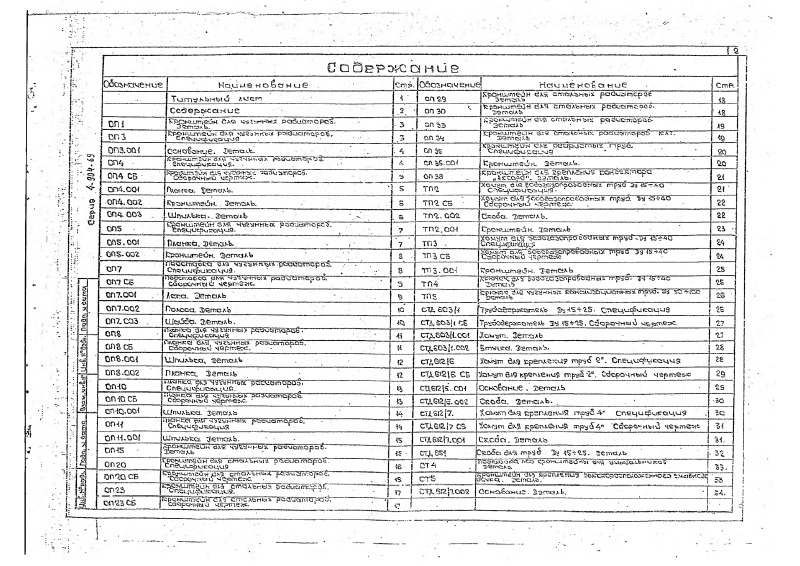 2
Содержание
Обозначение Наименование Стр. Обозначение Наименование Стр.
Титульный лист 1 ОП 29 Кронштейн для стальных радиаторов. Деталь 18
Содержание 2 ОП 30 Кронштейн для стальных радиаторов. Деталь 18
ОП 1 Кронштейн для чугунных радиаторов. Деталь. 3 ОП 33 Кронштейн для стальных радиаторов. Деталь 19
ОП 3 Кронштейн для чугунных радиаторов. 3 ОП 34 Кронштейн для стальных радиаторов Деталь 19
ОП3.001 Основание. Деталь. 4 ОП 35 Кронштейн для ребристых труб. Спецификация 20
ОП4 Кронштейн для чугунных радиаторов. Спецификация. 4 ОП 35.001 Кронштейн. Деталь. 20
ОП4 СБ Кронштейн для чугунных радиаторов. Сборочный чертеж. 5 ОП 38 Кронштейн для крепления конвектора „Аккорд". Деталь. 21
ОП4.001 Планка. Деталь. 5 ТП2 Хомут для водогазопроводных труб Ду 15÷40 Спецификация. 21
ОП4.002 Кронштейн. Деталь. 6 ТП2 СБ Хомут для водогазопроводных труб Ду 15÷40 Сборочный чертеж. 22
ОП4.003 Шпилька. Деталь. 6 ТП2.002 Скоба. Деталь. 22
ОП5 Кронштейн для чугунных радиаторов. Спецификация. 7 ТП2.001 Кронштейн. Деталь 23
ОП5.001 Планка. Деталь. 7 ТП3 Хомут для водогазопроводных труб Ду 15÷40 Спецификация 24
ОП5.002 Кронштейн. Деталь. 8 ТП3 СБ Хомут для водогазопроводных труб Ду 15÷40 Сборочный чертеж 24
ОП7 Подставка для чугунных радиаторов. Спецификация. 8 ТП3.001 Кронштейн. Деталь
ОП7 СБ Подставка для чугунных радиаторов. Сборочный чертеж. 9 ТП4 Крючок для водогазопроводных труб Ду 15÷40 Деталь
ОП7.001 Лапа. Деталь 9 ТП5 Крючок для чугунных канализационных труб Ду 50÷100 Деталь
ОП7.002 Полоса. Деталь 10 СТД 603/1 Трубодержатель Ду 15÷25. Спецификация 26
ОП7.003 Шайба. Деталь. 10 СТД 603/1 СБ Трубодержатель Ду 15÷25. Сборочный чертеж 27
ОП8 Планка для чугунных радиаторов. Спецификация. 11 СТД603/1.001 Хомут. Деталь 27
ОП8 СБ Планка для чугунных радиаторов. Сборочный чертеж. 11 СТД603/1.002 Втулка. Деталь 28
ОП8.001 Шпилька. Деталь 12 СТД 612/6 Хомут для крепления труб 2". Спецификация 28
ОП8.002 Планка. Деталь 12 СТД612/6 СБ Хомут для крепления труб 2". Сборочный чертеж 29
ОП10 Планка для чугунных радиаторов. Спецификация. 13 СТД612/6.001 Основание. Деталь
ОП10 СБ Планка для чугунных радиаторов. Сборочный чертеж. 13 Скоба. Деталь. 30
ОП10.001 Шпилька. Деталь 14 СТД612/7. Хомут для крепления труб 4" Спецификация 30
ОП11 Планка для чугунных радиаторов. Спецификация 14 СТД612/7 СБ Хомут для крепления труб 4" Сборочный чертеж 31
ОП11.001 Шпилька. Деталь. 15 СТД612/7.001 Скоба. Деталь 31.
ОП15 Кронштейн для чугунных радиаторов. Деталь 15 Скоба для труб Ду 15÷25. Деталь 32
ОП20 Кронштейн для стальных радиаторов. Спецификация 16 СТ4 Деталь 33.
ОП20 СБ Кронштейн для стальных радиаторов. Сборочный чертеж. СТ5 Кронштейн для крепления Деталь. 33
ОП23 Кронштейн для стальных радиаторов. Спецификация 17 Основание. Деталь. 34.
ОП23 СБ Кронштейн для стальных радиаторов. Сборочный чертеж. 17
Серия 4.904-69